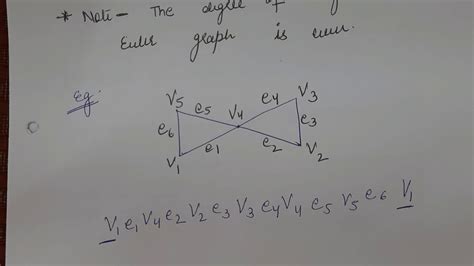 * Note - The degree of
Euler graph is even.
Eg:
V5 e5 V4 e4 V3
e6 e3
V1 e1 e2 V2
V1 e1 V4 e2 V2 e3 V3 e4 V4 e5 V5 e6 V1